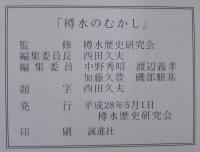 「樽水のむかし」
監修 樽水歴史研究会
編集委員長 西田久夫
編集委員 中野秀昭 渡辺義孝
加藤久豊 磯部順基
題字 西田久夫
発行 平成28年5月1日
樽水歴史研究会
印刷 誠進社